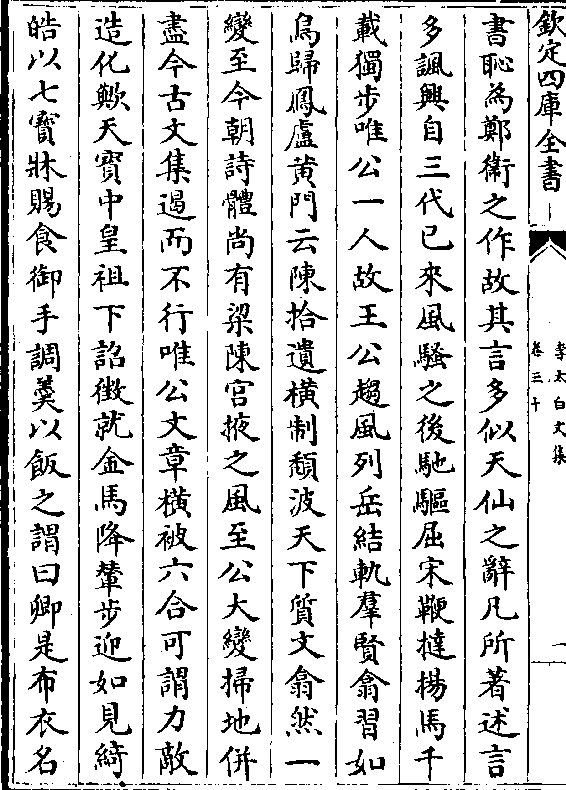 欽定四庫全書
李太白文集
卷三十
一
書恥為鄭衛之作故其言多似天仙之辭凡所著述言
多諷興自三代已來風騷之後馳驅屈宋鞭撻揚馬千
載獨步唯公一人故王公趨風列岳結軌羣賢翕習如
鳥歸鳳盧黄門云陳拾遺橫制頽波天下質文翕然一
變至今朝詩體尚有梁陳宫掖之風至公大變掃地併
盡今古文集遏而不行唯公文章橫被六合可謂力敵
造化歟天寳中皇祖下詔徵就金馬降輦步迎如見綺
皓以七寳牀賜食御手調羹以飯之謂曰卿是布衣名